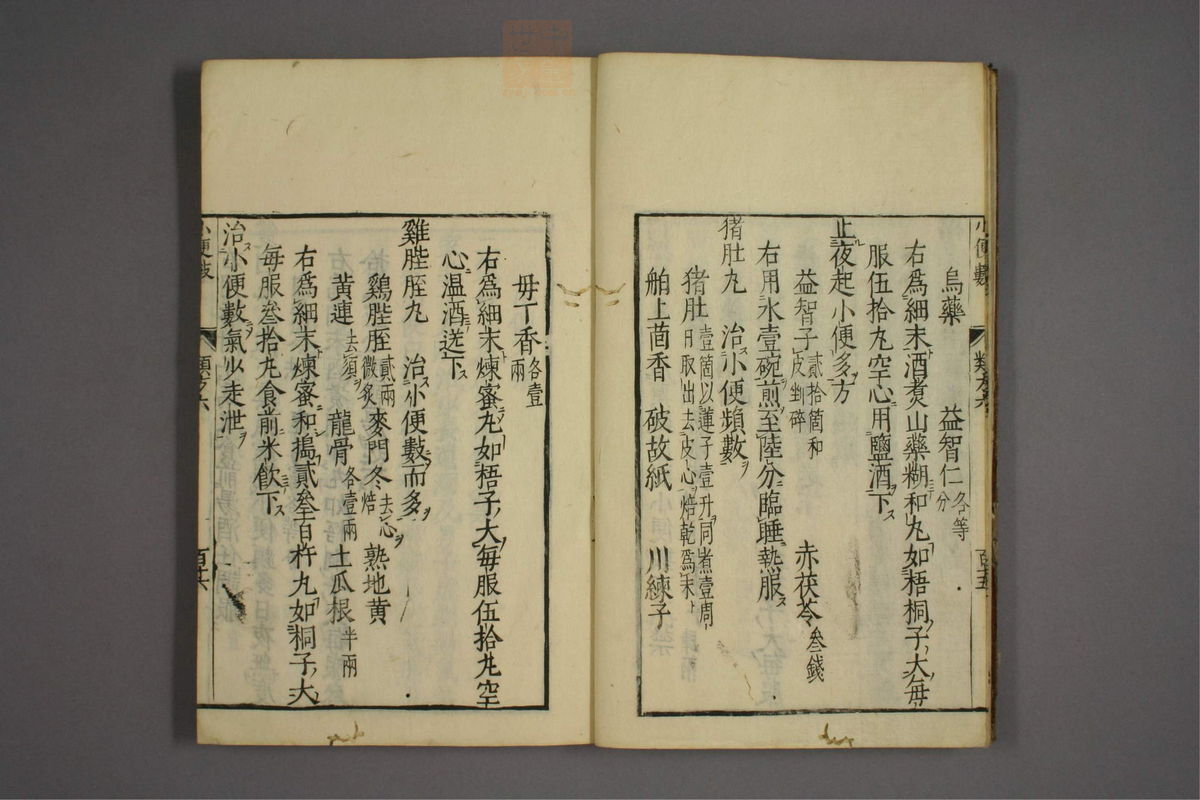 小便數 類方六 百十五
烏藥 益智仁各等分
右爲細末酒煑山藥糊和丸如梧桐子大每
服伍拾丸空心用鹽酒下
止夜起小便多方
益智子貳拾箇和皮剉碎 赤茯苓叁錢
右用水壹碗煎至陸分臨睡熱服
猪肚丸 治小便頻數
猪肚壹箇以蓮子壹升同煮壹周日取出去皮心焙乾爲末
舶上茴香 破故紙 川練子
毋丁香各壹兩
右爲細末煉蜜丸如梧子大每服伍拾丸空
心温酒送下
雞膍胵丸 治小便數而多
鷄膍胵貳兩微炙 麥門冬去心焙 熟地黄
黄連去須 龍骨各壹兩 土瓜根半兩
右爲細末煉蜜和搗貳叁百杵丸如桐子大
每服叁拾丸食前米飲下
治小便數氣少走泄
小便數 類方六 百十六